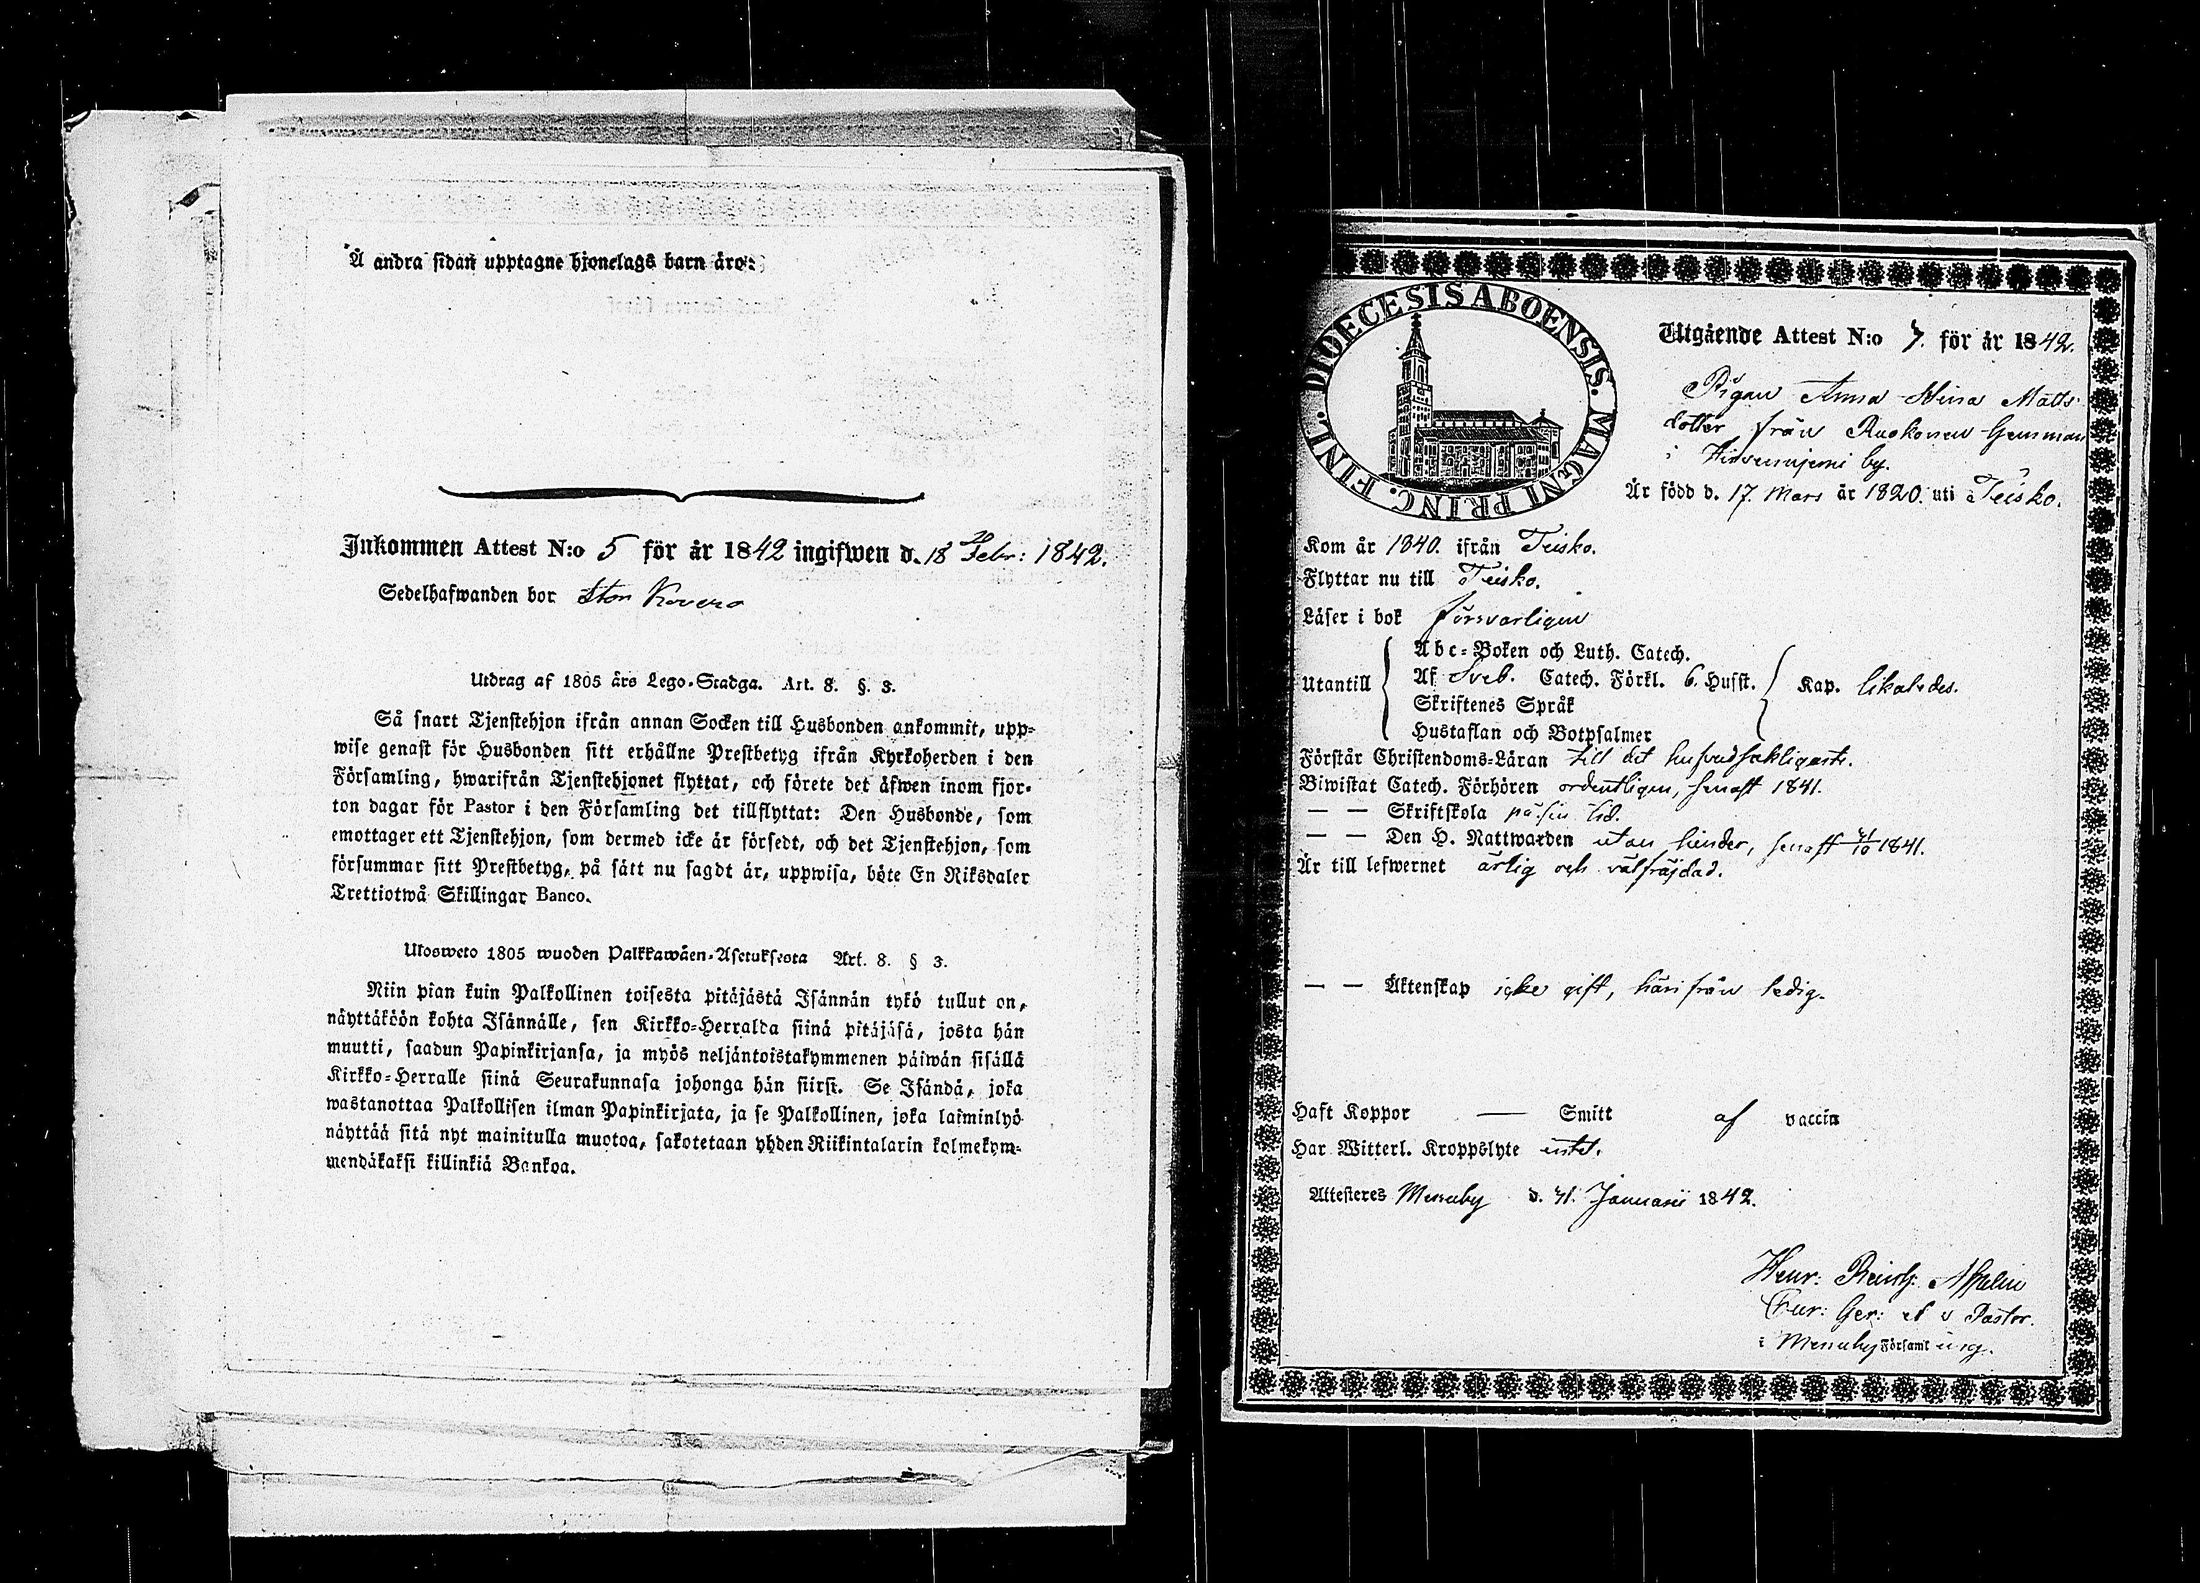 Å andra sidan upptagne hjonelags barn äro:
Inkommen Attest N:o 5 för år 1842 ingifwen d. 18 20 Febr: 1842.
Sedelhafwanden bor Stor Kovero
Utdrag af 1805 års Lego-Stadga. Art. 8. §. 3.
Så snart Tjenstehjon ifrån annan Socken till Husbonden ankommit, upp-
wise genast för Husbonden sitt erhållne Prestbetyg ifrån Kyrkoherden i den
Församling, hwarifrån Tjenstehjonet flyttat, och förete det äfwen inom fjor-
ton dagar för Pastor i den Församling det tillflyttat: Den Husbonde, som
emottager ett Tjenstehjon, som dermed icke är försedt, och det Tjenstehjon, som
försummar sitt Prestbetyg, på sätt nu sagdt är, uppwisa, böte En Riksdaler
Trettiotwå Skillingar Banco.
Ulosweto 1805 wuoden Palkkawäen-Asetuksesta Art. 8. § 3.
Niin pian kuin Palkollinen toisesta pitäjästä Isännän tykö tullut on,
näyttäköön kohta Isännälle, sen Kirkko-Herralda siinä pitäjäsä, josta hän
muutti, saadun Papinkirjansa, ja myös neljäntoistakymmenen päiwän sisällä
Kirkko-Herralle siinä Seurakunnasa johonga hän siirsi. Se Isändä, joka
wastanottaa Palkollisen ilman Papinkirjata, ja se Palkollinen, joka laiminlyö
näyttää sitä nyt mainitulla muotoa, sakotetaan yhden Riikintalarin kolmekym-
mendäkaksi killinkiä Bankoa.
DIOECESIS ABOENSIS. MAGNI PRINC. FINL.
Utgående Attest N:o 7. för år 1842.
Pigan Anna Stina Matts
dotter från Ruokonen Gemman
i by.
Är född d. 17. Mars år 1820. uti Teisko.
Kom år 1840. ifrån Teisko.
Flyttar nu till Teisko.
Läser i bok försvarligen
Abc-Boken och Luth. Catech.
Utantill Af Sveb. Catech. Förkl. 6. Husst. Kap. likaledes.
Skriftenes Språk
Hustaflan och Botpsalmer
Förstår Christendoms-Läran till det hufvudsakligaste.
Biwistat Catech. Förhören ordentligen, senast 1841.
— — Skriftskola på sin tid.
— — Den H. Nattwarden utan hinder, senast 31/10 1841.
Är till lefwernet ärlig och välfräjdad.
— — Äktenskap icke gift, härifrån ledig.
Haft Koppor — Smitt af vaccin
Har Witterl. Kroppslyte intet.
Attesteres Messuby d. 31. Januarii 1842.
Henr: Reinh: Malin
Cur: Ger: et v Pastor.
i Messuby Församling.